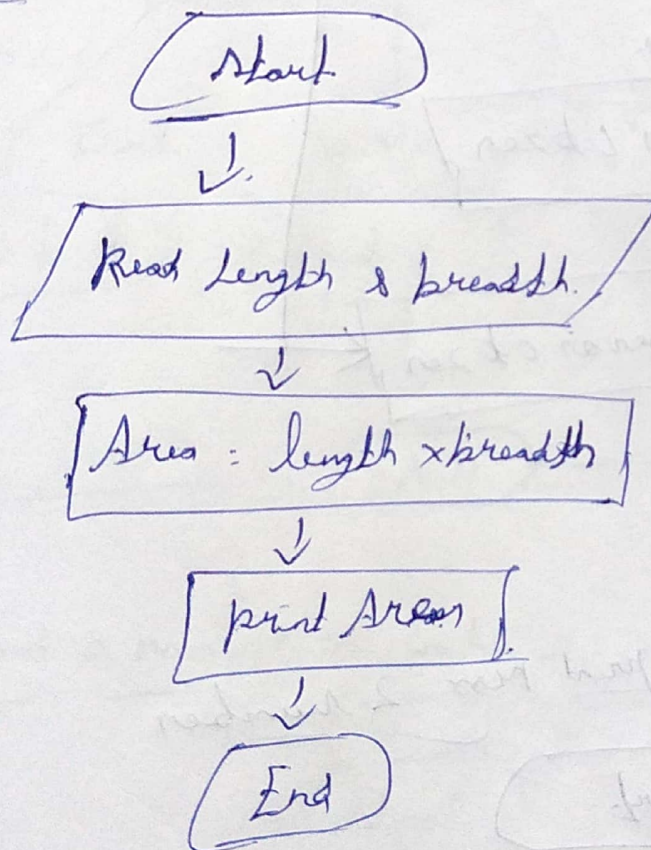 Start
Read Length & breadth.
Area = length x breadth
print Area
End